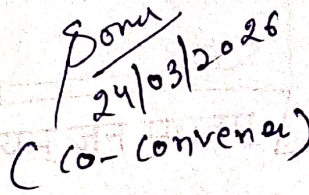 Sonu
24/03/2026
(Co-convener)